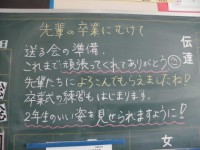 先輩の卒業にむけて
送る会の準備、
これまで頑張ってくれてありがとう
先輩たちによろこんでもらえましたね!
卒業式の練習もはじまります。
2年生のいい姿を見せられますように!
伝達
女